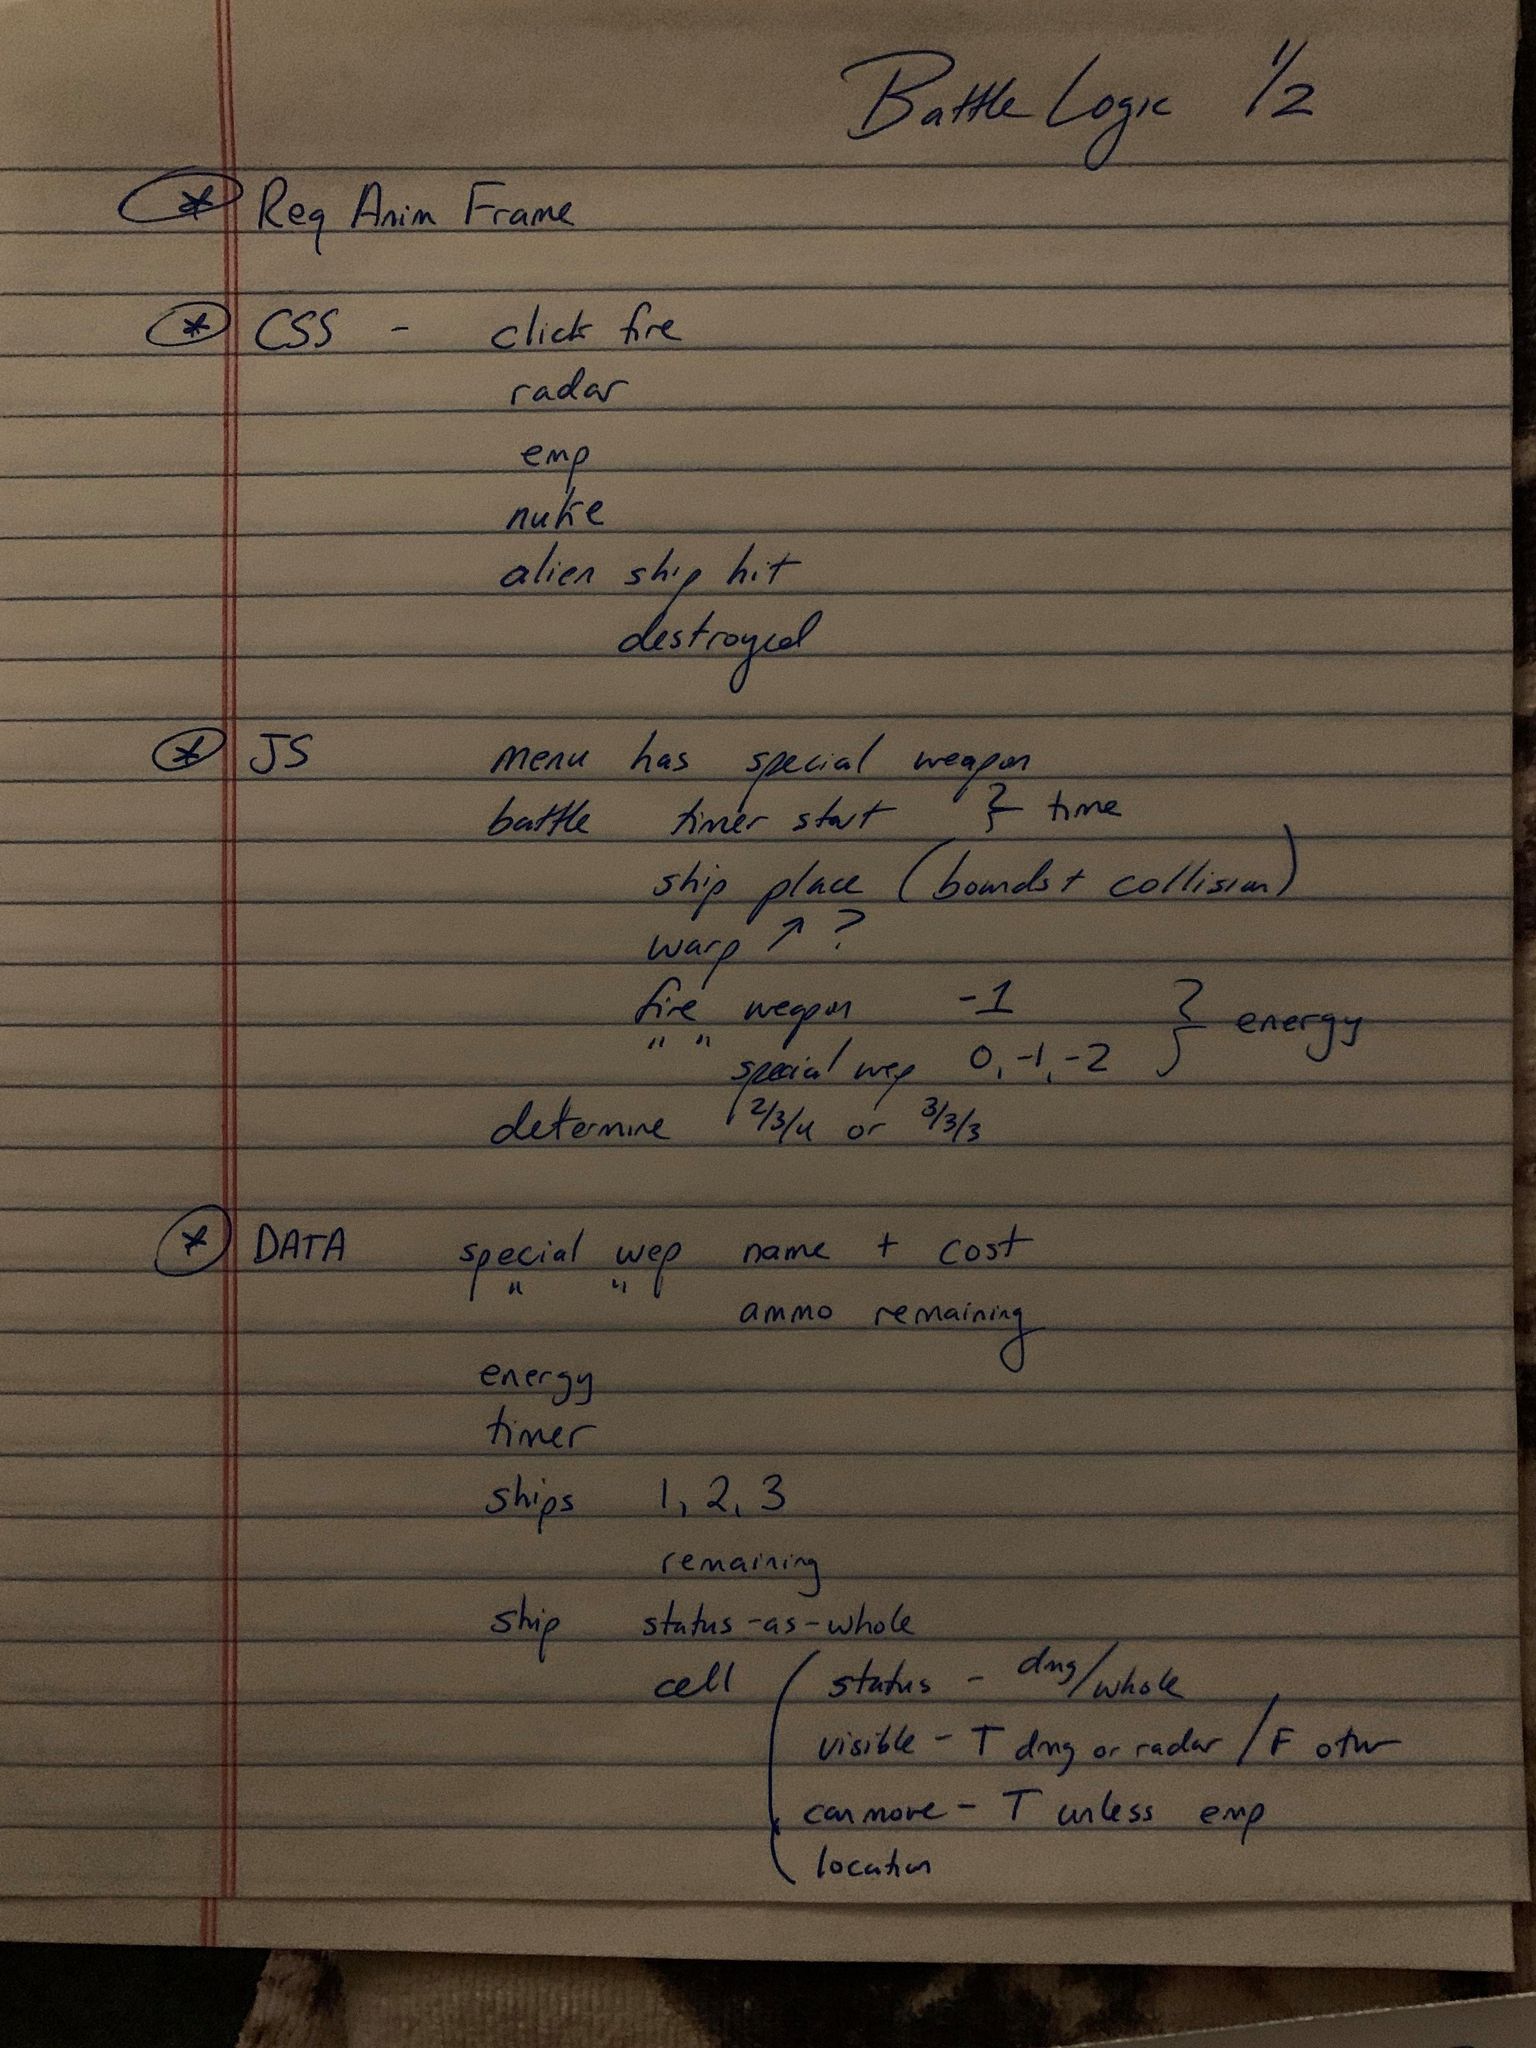 Battle Logic 1/2
* Req Anim Frame
* CSS - click fire
radar
emp
nuke
alien ship hit
destroyed
* JS menu has special weapon
battle timer start } time
ship place (bounds + collision)
warp ↗ ?
fire weapon -1 } energy
" " special wep 0, -1, -2
determine 2/3/4 or 3/3/3
* DATA special wep name + cost
" " ammo remaining
energy
timer
ships 1, 2, 3
remaining
ship status-as-whole
cell ( status - dmg/whole
visible - T dmg or radar / F otw
can move - T unless emp
location